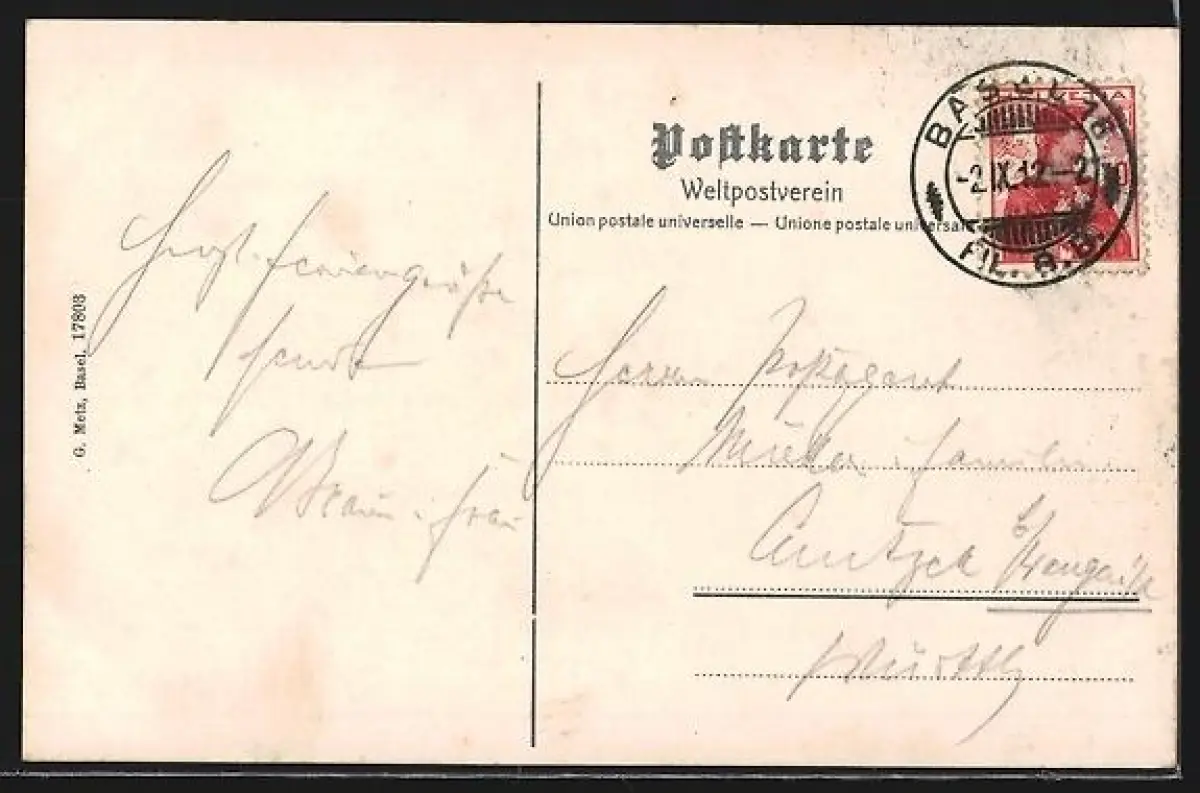 Postkarte
Weltpostverein
Union postale universelle — Unione postale universale
HELVETIA
BASEL 18
-2.IX.12.-2
FIL. B.B.
G. Metz, Basel, 17803
Herzl. Feriengrüße
sendet
Braun u. Frau
Herrn Postagent
Müller u. Familie
b/
Württbg